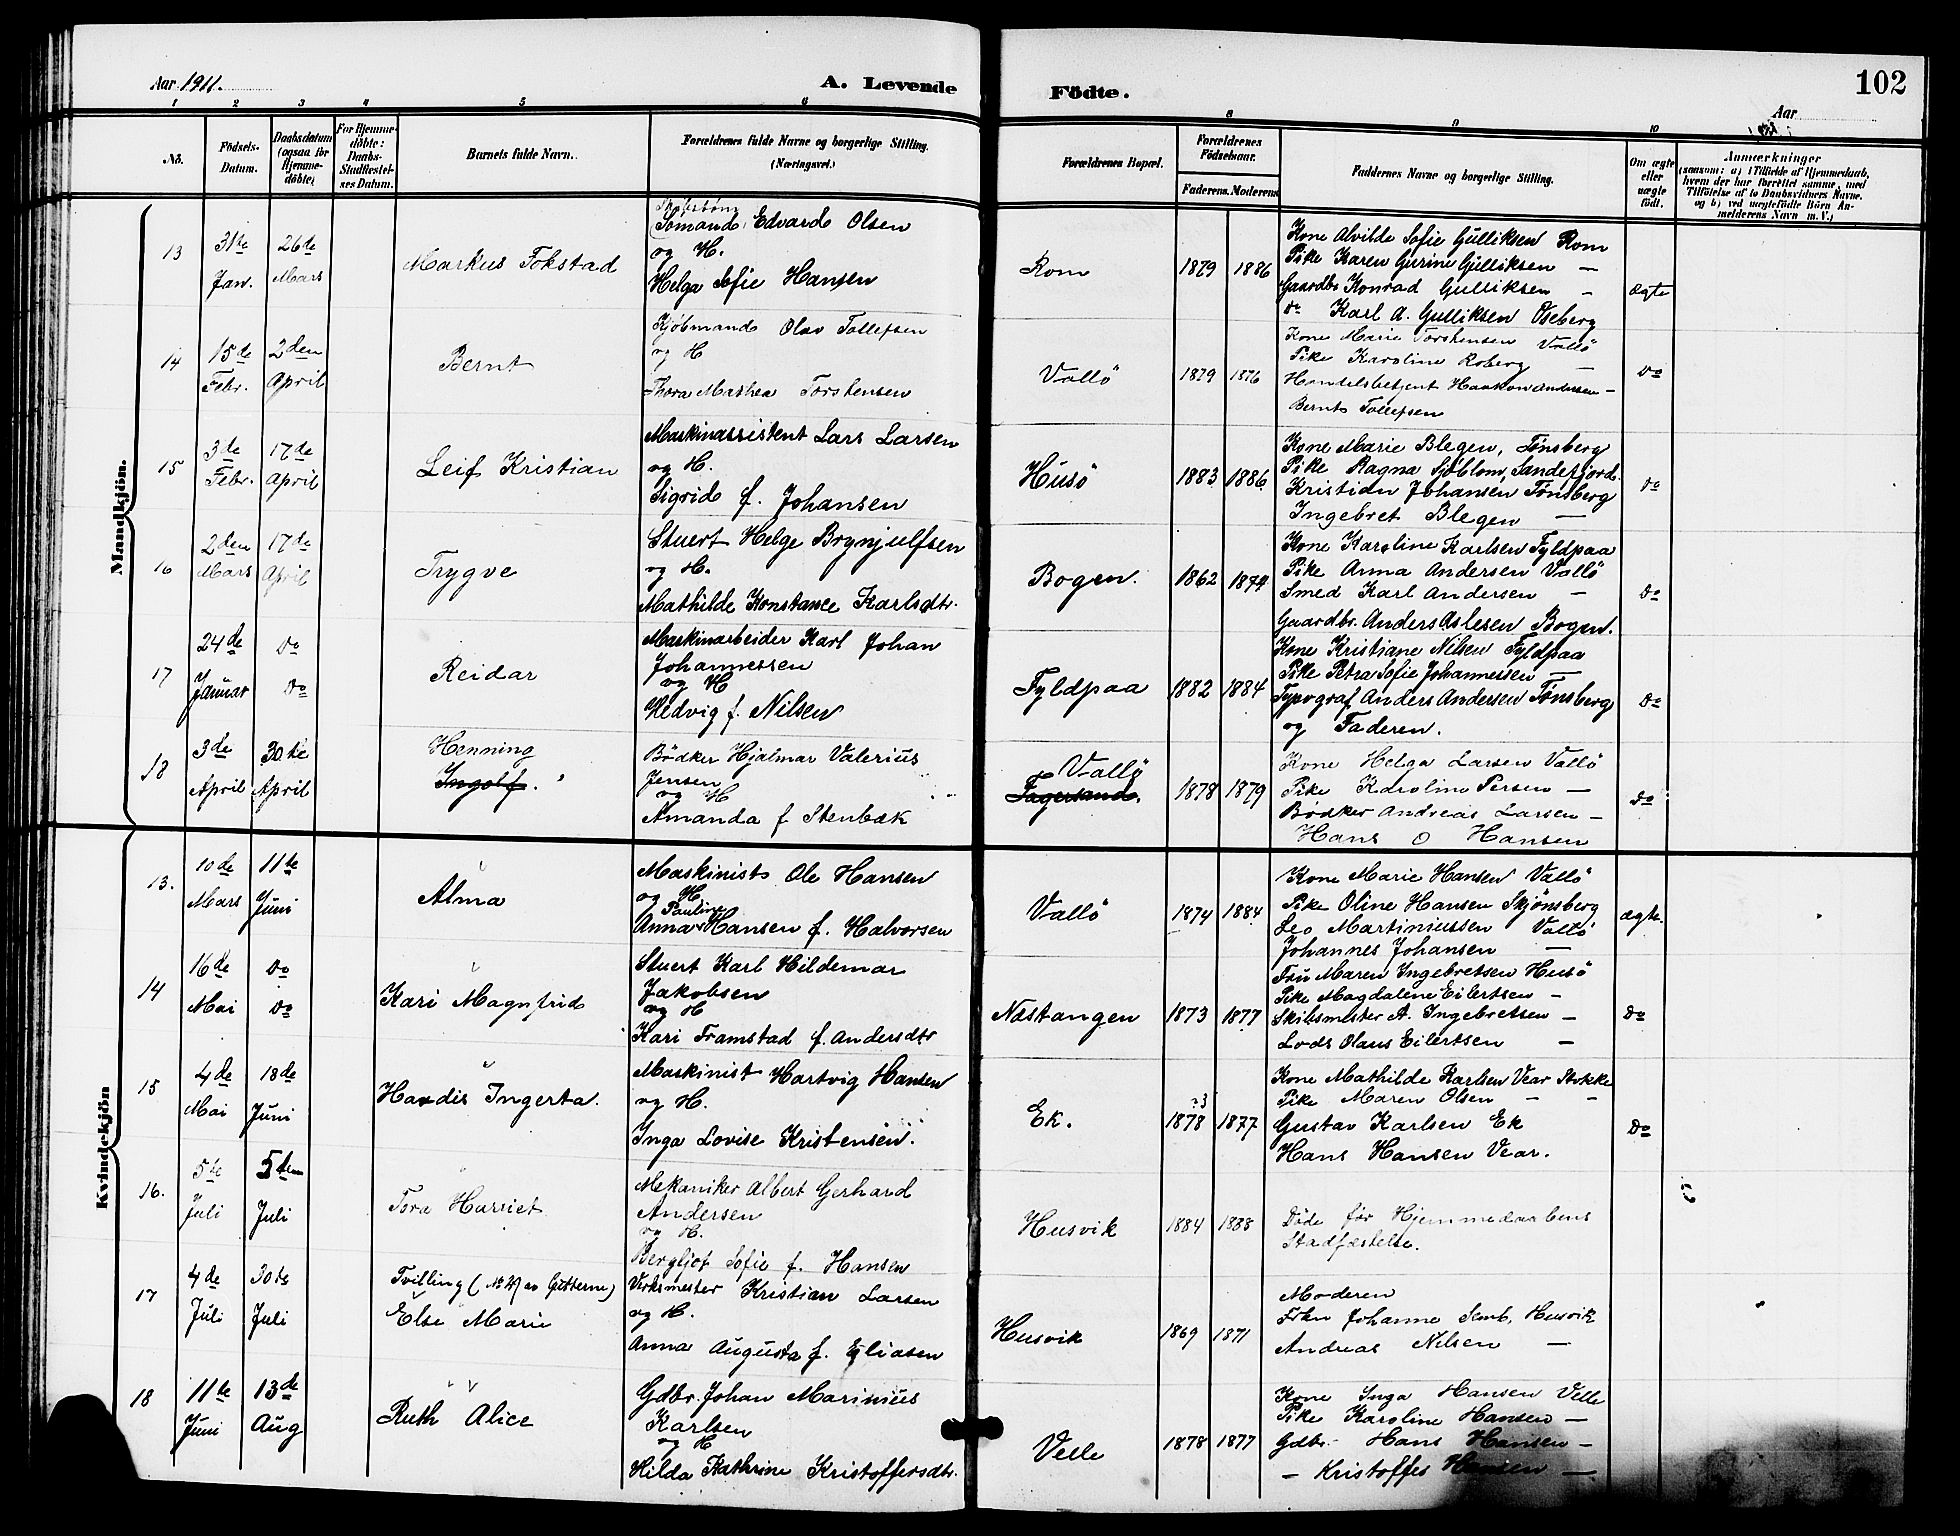 Aar 1911.
A. Levende Födte.
102
Aar
1 2 3 4 5 6 8 9 10
No.
Födsels-Datum.
Daabsdatum (ogsaa for Hjemmedöbte)
For Hjemmedöbte: Daabs-Stadfæstelses Datum.
Barnets fulde Navn.
Forældrenes fulde Navne og borgerlige Stilling. (Næringsvei.)
Forældrenes Bopæl.
Forældrenes Födselsaar.
Faderens. Moderens
Faddernes Navne og borgerlige Stilling.
Om ægte eller uægte födt.
Anmærkninger
(saasom: a) i Tilfælde af Hjemmedaab, hvem der har forrettet samme, med Tilföielse af to Daabsvidners Navne. og b) ved uægtefödte Börn Anmelderens Navn m.V.)
Mandkjön.
13
31te Jan.
26de Mars
Markus Fokstad
Sömand Edvard Olsen
og H.
Helga Sofie Hansen
Rom
1879 1886
Kone Alvilde Sofie Gulliksen Rom
Pike Karen Gurine Gulliksen —
Gaardbr Konrad Gulliksen -
do Karl A. Gulliksen Oseberg
Ægte
14
15de Febr.
2den April
Bernt
Kjöbmand Olav Tollefsen
og H
Thora Mathea Torstensen
Vallö
1879 1876
Kone Marie Torstensen Vallö
Pike Karoline Roberg —
Handelsbetjent Haakon Andersen —
Bernt Tollefsen
do
15
3de Febr.
17de April
Leif Kristian
Maskinassistent Lars Larsen
og H.
Sigrid f. Johansen
Husö
1883 1886
Kone Marie Blegen, Tönsberg
Pike Ragna Sjöblom, Sandefjord.
Kristian Johansen Tönsberg
Ingebret Blegen —
do
16
2den Mars
17de April
Trygve
Stuert Helge Brynjulfsen
og H.
Mathilde Konstance Karlsdtr.
Bogen.
1862 1874
Kone Karoline Karlsen Fyldpaa
Pike Anna Andersen Vallö
Smed Karl Andersen —
Gaardbr. Anders Aslesen Bogen.
do
17
24de Januar
do do
Reidar
Maskinarbeider Karl Johan
Johannessen
og H
Hedvig f. Nilsen
Fyldpaa
1882 1884
Kone Kristiane Nilsen Fyldpaa
Pike Petra Sofie Johannessen —
Typograf Anders Andersen Tönsberg
og Faderen.
do
18
3de April
30te April
Henning
Ingolf.
Bödker Hjalmar Valerius
Jensen
og H
Amanda f Stenbæk
Vallö
Fagersand.
1878 1879
Kone Helga Larsen Vallö
Pike Karoline Persen —
Bödker Andreas Larsen —
Hans O Hansen
do
Kvindekjön
13.
10de Mars
11te Juni
Alma
Maskinist Ole Hansen
og H.
Pauline
Anna Hansen f. Halvorsen
Vallö
1874 1884
Kone Marie Hansen Vallö
Pike Oline Hansen Skjönsberg
Leo Martiniussen Vallö
Johannes Johansen —
ægte.
14
16de Mai
do do
Kari Magnfrid
Stuert Karl Hildemar
Jakobsen
og H
Kari Framstad f. Andersdtr
Næstangen
1873 1877
Fru Maren Ingebretsen Husö
Pike Magdalene Eilertsen -
Skibsmester A. Ingebretsen —
Lods Olaus Eilertsen —
do
15
4de Mai
18de Juni
Haxdis Ingerta.
Maskinist Hartvig Hansen
og H.
Inga Lovise Kristensen.
Ek.
1878 1877
Kone Mathilde Karlsen Vear Stokke
Pike Maren Olsen — —
Gustav Karlsen Ek
Hans Hansen Vear.
do
16.
5te Juli
5te Juli
Tora Harriet
Mekaniker Albert Gerhard
Andersen
og H.
Bergljot Sofie f. Hansen
Husvik
1884 1888
Döde för Hjemmedaabens
Stadfæstelse.
17
4de Juli
30te Juli
Tvilling (No 24 av Gutterne)
Else Marie
Verksmester Kristian Larsen
og H.
Anna Augusta f. Eliasen
Husvik
1869 1871
Moderen
Frkn Johanne Semb, Husvik
Andreas Nilsen —
18
11te Juni
13de Aug
Ruth Alice
Gdbr. Johan Marinius
Karlsen
og H
Hilda Kathrine Kristoffersdtr.
Velle
1878 1877
Kone Inga Hansen Velle
Pike Karoline Hansen —
Gdbr. Hans Hansen —
— Kristoffer Hansen —